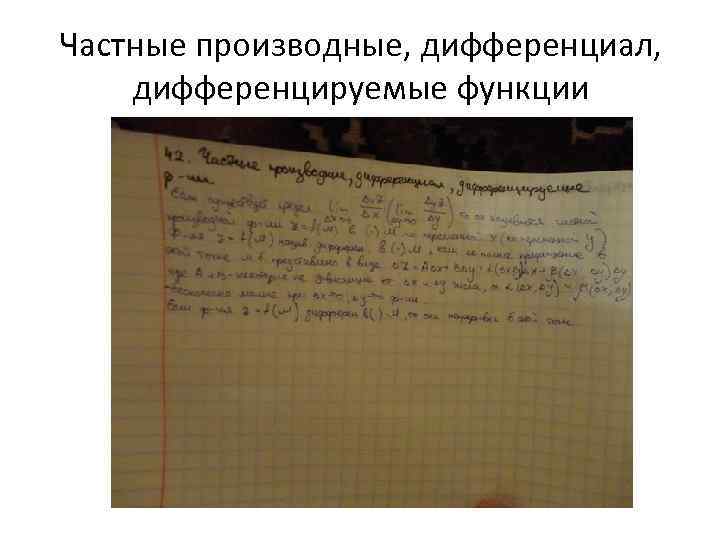 Частные производные, дифференциал,
дифференцируемые функции
42. Частные производные, дифференциал, дифференцируемые
ф-ии.
Если существует предел lim Δx→0 Δxz/Δx (lim Δy→0 Δyz/Δy) то он называется частной
производной ф-ии z = f(M) в (·) M по переменной x (по переменной y)
Ф-ия z = f(M) назыв. дифферен. в (·) M, если её полное приращение в
этой точке м.б. представлено в виде Δz = AΔx + BΔy + α(Δx, Δy)Δx + β(Δx, Δy)Δy
где A и B - некоторые не зависящие от Δx и Δy числа, а α(Δx, Δy) и β(Δx, Δy)
- бесконечно малые при Δx→0, Δy→0 ф-ии.
Если ф-ия z = f(M) дифферен в (·) M, то она в этой точке.